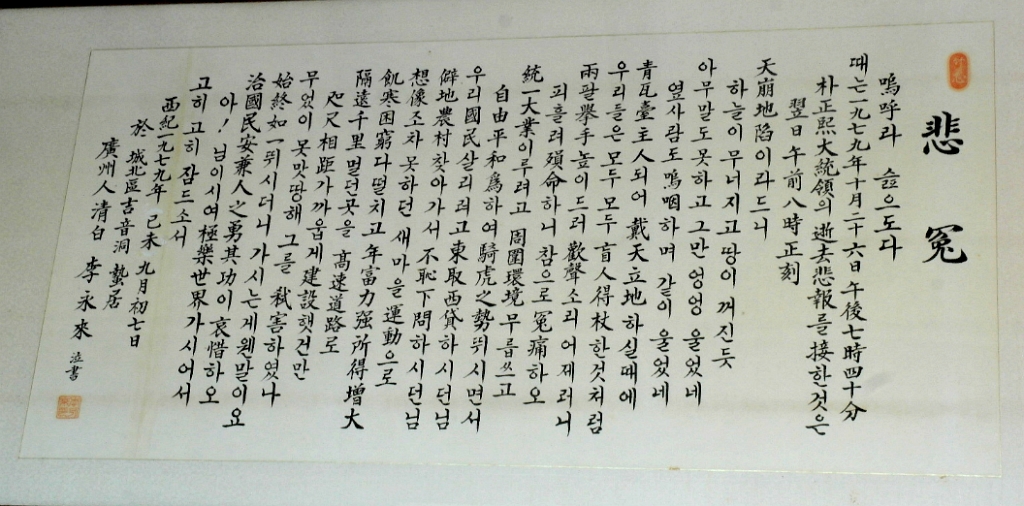 悲寃
嗚呼라 슲으도다
때는 一九七九年十月二十六日午後七時四十分
朴正熙大統領의 逝去悲報를 接한것은
翌日午前八時正刻
天崩地陷이라드니
하늘이 무너지고 땅이 꺼진듯
아무말도못하고 그만 엉엉 울었네
옆사람도嗚咽하며 같이 울었네
青瓦臺主人되어 戴天立地하실때에
우리들은모두모두盲人得杖한것처럼
兩팔擧手높이드러 歡聲소리어제러니
피흘려殞命하니참으로寃痛하오
統一大業이루려고 周圍環境무릅쓰고
自由平和爲하여騎虎之勢뛰시면서
우리國民살리려고東取西貸하시던님
僻地農村찾아가서 不恥下問하시던님
想像조차못하던 새마을運動으로
飢寒困窮다떨치고年富力强所得增大
隔遠千里멀던곳을 高速道路로
咫尺相距가까웁게建設햇건만
무엇이 못맛땅해 그를 弑害하였나
始終如一뛰시더니 가시는게웬말이요
治國民安兼人之勇其功이 哀惜하오
아! 님이시여極樂世界가시어서
고히고히 잠드소서
西紀一九七九年 己未 九月初七日
於 城北區吉音洞 蟄居
廣州人清白 李永來 泣書